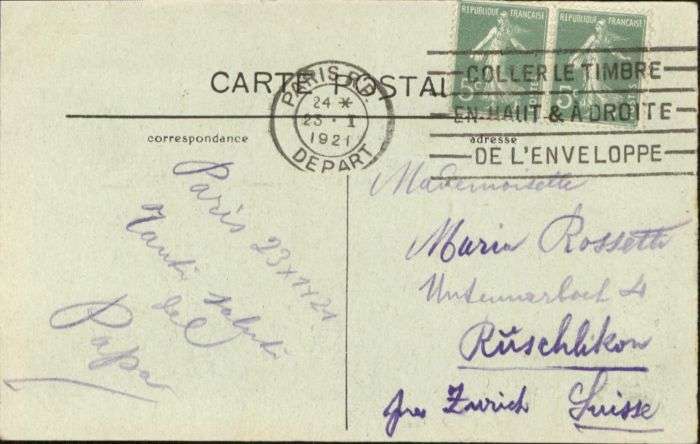 REPUBLIQUE FRANÇAISE REPUBLIQUE FRANÇAISE
5c 5c
CARTE POSTAL
PARIS R.P.
24 *
23 - I
1921
DEPART
COLLER LE TIMBRE
EN HAUT & A DROITE
DE L'ENVELOPPE
correspondance
Paris 23 1 21
Tanti saluti
del
Papa
adresse
Mademoiselle
Maria Rossetti
4
Rüschlikon
Zurich Suisse